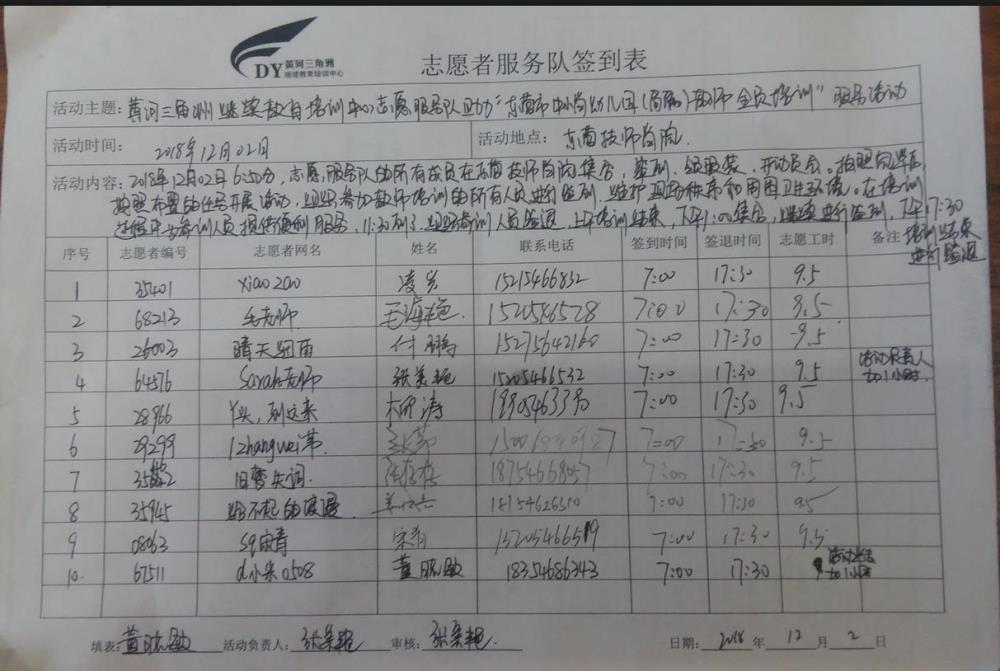 DY 黄河三角洲
继续教育培训中心
志愿者服务队签到表
活动主题：黄河三角洲继续教育培训中心志愿服务队助力"东营市中小学幼儿园(简称)教师全员培训"服务活动
活动时间： 2018年12月02日 活动地点： 东营技师学院.
活动内容：2018年12月02日6:50分，志愿服务队的所有成员在东营技师学院内集合，签到、领服装、开动员会。拍照完毕后，
按照布置的任务开展活动，组织参加教师培训的所有人员进行签到，维护现场秩序和周围卫生环境。在培训
过程中为参训人员提供便利服务，11:30到了，组织参训人员签退，上午培训结束，下午1:00集合，继续进行签到，下午17:30
培训结束
进行签退
序号 志愿者编号 志愿者网名 姓名 联系电话 签到时间 签退时间 志愿工时 备注
1 35401 xiao zao 凌 15215466832 7:00 17:30 9.5
2 68213 毛老师 毛海艳. 1520546528 7:00 17:30 9.5
3 26003 晴天细雨 15275642160 7:00 17:30 9.5
4 64576 Sarah老师 张美艳 15205466532 7:00 17:30 9.5 活动负责人
加1小时.
5 28966 丫头，到这来 涛 7:00 17:30 9.5
6 29299 1zhangwei苇. 7:00 17:30 9.5
7 旧梦失词. 18754668057 7:00 17:30 9.5
8 35945 输不起的浪漫 18154626510 7:00 17:30 9.5
9 08063 sq宋青 宋青 15205466519 7:00 17:30 9.5
10. 67511 d小米0508 黄 18354686343 7:00 17:30 9 加1小时
填表：黄 活动负责人：张美艳 审核：张美艳. 日期： 2018 年 12 月 2 日